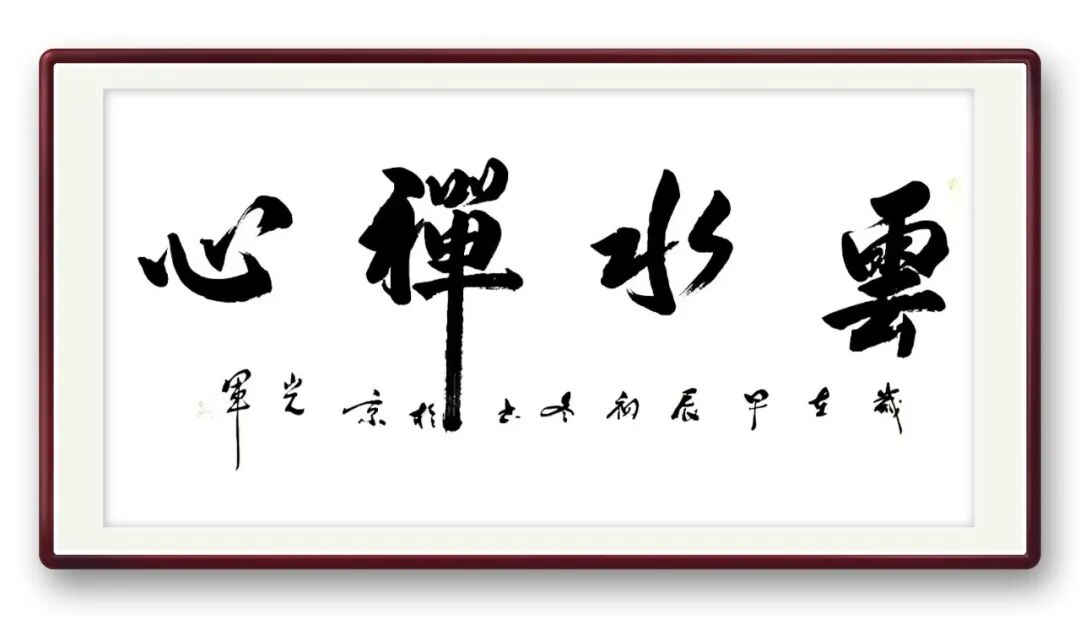 雲水禪心
歲在甲辰初冬书於京光軍